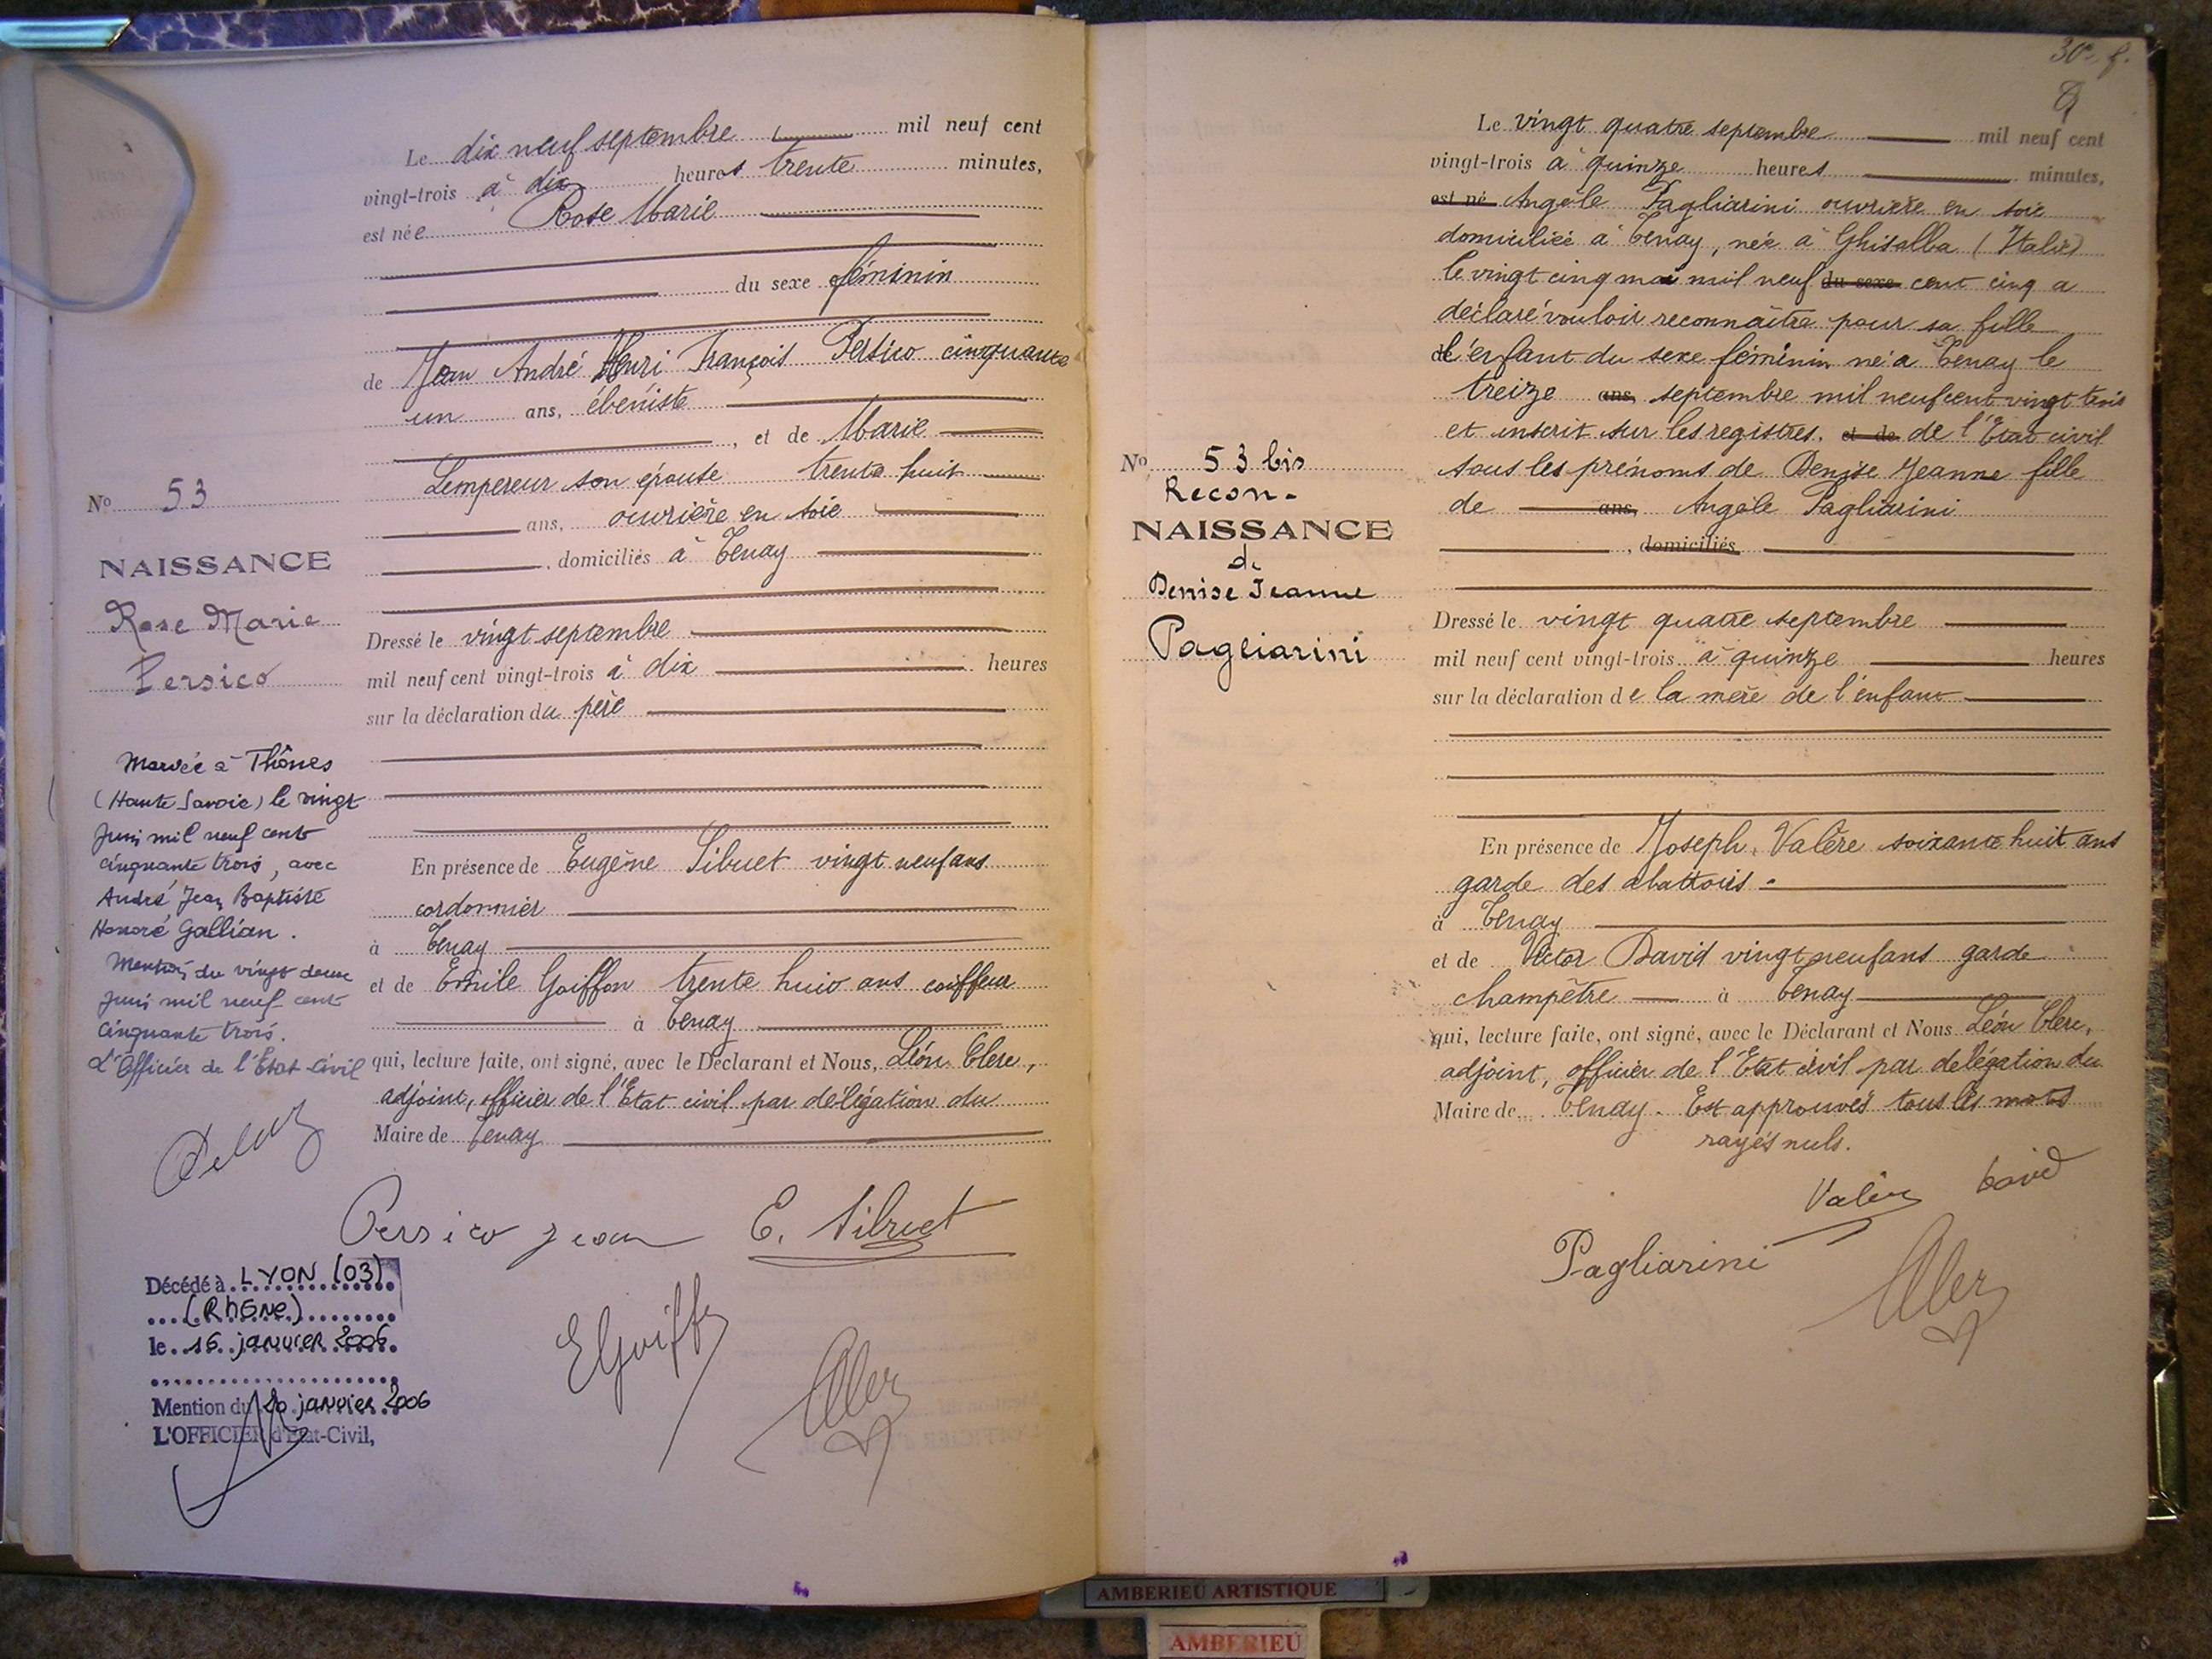 Le dix neuf septembre mil neuf cent
vingt-trois à dix heures trente minutes,
est née Rose Marie
du sexe féminin
de Jean André Henri François Persico cinquante
un ans, ébéniste
, et de Marie
Lempereur son épouse trente huit
ans, ouvrière en soie
, domiciliés à Tenay
Dressé le vingt septembre
mil neuf cent vingt-trois à dix heures
sur la déclaration du père
En présence de Eugène Sibuet vingt neuf ans
cordonnier
à Tenay
et de Emile Goiffon trente huit ans coiffeur
à Tenay
qui, lecture faite, ont signé, avec le Déclarant et Nous, Léon Clerc,
adjoint, officier de l'Etat civil par délégation du
Maire de Tenay
Persico Jean E. Sibuet
EGoiffon
No 53
NAISSANCE
Rose Marie
Persico
Mariée à Thônes
(Haute Savoie) le vingt
Juin mil neuf cent
cinquante trois, avec
André Jean Baptiste
Honoré Gallian.
Mention du vingt deux
Juin mil neuf cent
cinquante trois.
L'Officier de l'Etat-Civil
Décédé à LYON (03)
(RhôNe)
le 16 janvier 2006
Mention du 20 janvier 2006
L'OFFICIER d'Etat-Civil,
30e f.
Le vingt quatre septembre mil neuf cent
vingt-trois à quinze heures minutes,
est né Angèle Pagliarini ouvrière en soie
domiciliée à Tenay, née à Ghisalba (Italie)
le vingt cinq mai mil neuf du sexe cent cinq a
déclaré vouloir reconnaître pour sa fille
de l'enfant du sexe féminin né à Tenay le
treize ans, septembre mil neuf cent vingt trois
et inscrit sur les registres, et de de l'Etat civil
sous les prénoms de Denise Jeanne fille
de ans, Angèle Pagliarini
, domiciliés
Dressé le vingt quatre septembre
mil neuf cent vingt-trois à quinze heures
sur la déclaration de la mère de l'enfant
En présence de Joseph Valère soixante huit ans
garde des abattoirs.
à Tenay
et de Victor David vingt neuf ans garde
champêtre à Tenay
qui, lecture faite, ont signé, avec le Déclarant et Nous Léon Clerc,
adjoint, officier de l'Etat civil par délégation du
Maire de Tenay. Est approuvés tous les mots
rayés nuls.
Valère David
Pagliarini
No 53 bis
Recon.
NAISSANCE
de
Denise Jeanne
Pagliarini
AMBERIEU ARTISTIQUE
AMBERIEU